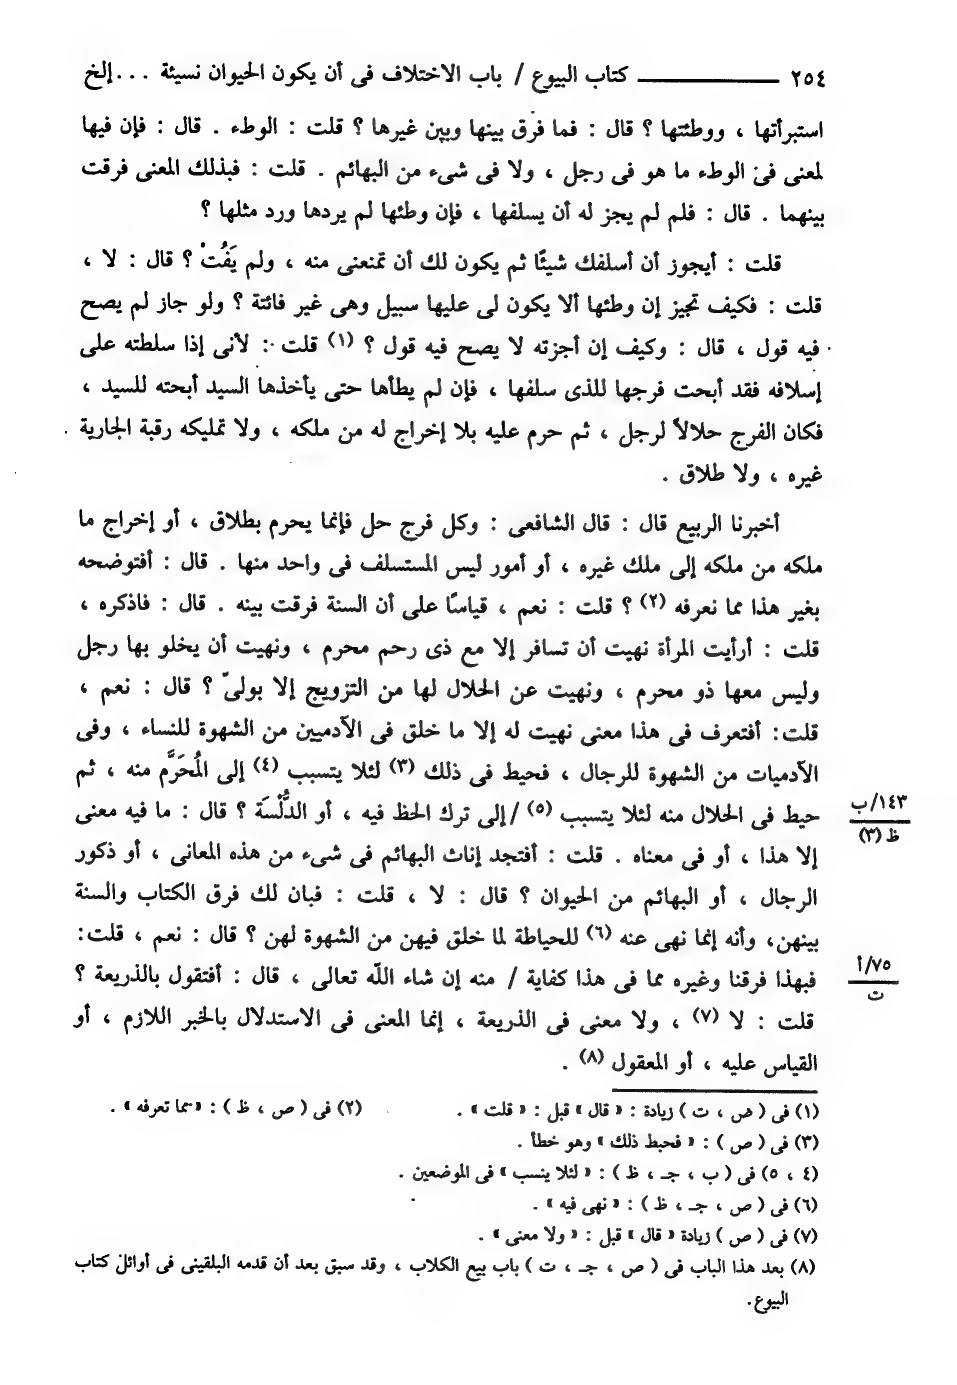 ٢٥٤ ــــــــــ كتاب البيوع / باب الاختلاف فى أن يكون الحيوان نسيئة ... إلخ
استبرأتها ، ووطئتها ؟ قال : فما فرق بينها وبين غيرها ؟ قلت : الوطء . قال : فإن فيها
لمعنى فى الوطء ما هو فى رجل ، ولا فى شىء من البهائم . قلت : فبذلك المعنى فرقت
بينهما . قال : فلم لم يجز له أن يسلفها ، فإن وطئها لم يردها ورد مثلها ؟
قلت : أيجوز أن أسلفك شيئًا ثم يكون لك أن تمنعنى منه ، ولم يَفُتْ ؟ قال : لا ،
قلت : فكيف تجيز إن وطئها ألا يكون لى عليها سبيل وهى غير فائتة ؟ ولو جاز لم يصح
فيه قول ، قال : وكيف إن أجزته لا يصح فيه قول ؟ (١) قلت : لأنى إذا سلطته على
إسلافه فقد أبحت فرجها للذى سلفها ، فإن لم يطأها حتى يأخذها السيد أبحته للسيد ،
فكان الفرج حلالاً لرجل ، ثم حرم عليه بلا إخراج له من ملكه ، ولا تمليكه رقبة الجارية
غيره ، ولا طلاق .
أخبرنا الربيع قال : قال الشافعى : وكل فرج حل فإنما يحرم بطلاق ، أو إخراج ما
ملكه من ملكه إلى ملك غيره ، أو أمور ليس المستسلف فى واحد منها . قال : أفتوضحه
بغير هذا مما نعرفه (٢) ؟ قلت : نعم ، قياسًا على أن السنة فرقت بينه . قال : فاذكره ،
قلت : أرأيت المرأة نهيت أن تسافر إلا مع ذى رحم محرم ، ونهيت أن يخلو بها رجل
وليس معها ذو محرم ، ونهيت عن الحلال لها من التزويج إلا بولىّ ؟ قال : نعم ،
قلت: أفتعرف فى هذا معنى نهيت له إلا ما خلق فى الآدميين من الشهوة للنساء ، وفى
الآدميات من الشهوة للرجال ، فحيط فى ذلك (٣) لئلا يتسبب (٤) إلى المُحَرَّم منه ، ثم
حيط فى الحلال منه لئلا يتسبب (٥) /إلى ترك الحظ فيه ، أو الدُّلْسَة ؟ قال : ما فيه معنى
١٤٣/ب
ظ (٣)
إلا هذا ، أو فى معناه . قلت : أفتجد إناث البهائم فى شىء من هذه المعانى ، أو ذكور
الرجال ، أو البهائم من الحيوان ؟ قال : لا ، قلت : فبان لك فرق الكتاب والسنة
بينهن، وأنه إنما نهى عنه (٦) للحياطة لما خلق فيهن من الشهوة لهن ؟ قال : نعم ، قلت:
فبهذا فرقنا وغيره مما فى هذا كفاية / منه إن شاء اللّه تعالى ، قال : أفتقول بالذريعة ؟
٧٥/أ
ت
قلت : لا (٧) ، ولا معنى فى الذريعة ، إنما المعنى فى الاستدلال بالخبر اللازم ، أو
القياس عليه ، أو المعقول (٨) .
(١) فى ( ص ، ت ) زيادة : « قال » قبل : « قلت » . (٢) فى ( ص ، ظ ) : « مما تعرفه » .
(٣) فى ( ص ) : « فحبط ذلك » وهو خطأ .
(٤ ، ٥) فى ( ب ، جـ ، ظ ) : « لئلا ينسب » فى الموضعين .
(٦) فى ( ص ، جـ ، ظ ) : « نهى فيه » .
(٧) فى ( ص ) زيادة « قال » قبل : « ولا معنى » .
(٨) بعد هذا الباب فى ( ص ، جـ ، ت ) باب بيع الكلاب ، وقد سبق بعد أن قدمه البلقينى فى أوائل كتاب
البيوع.